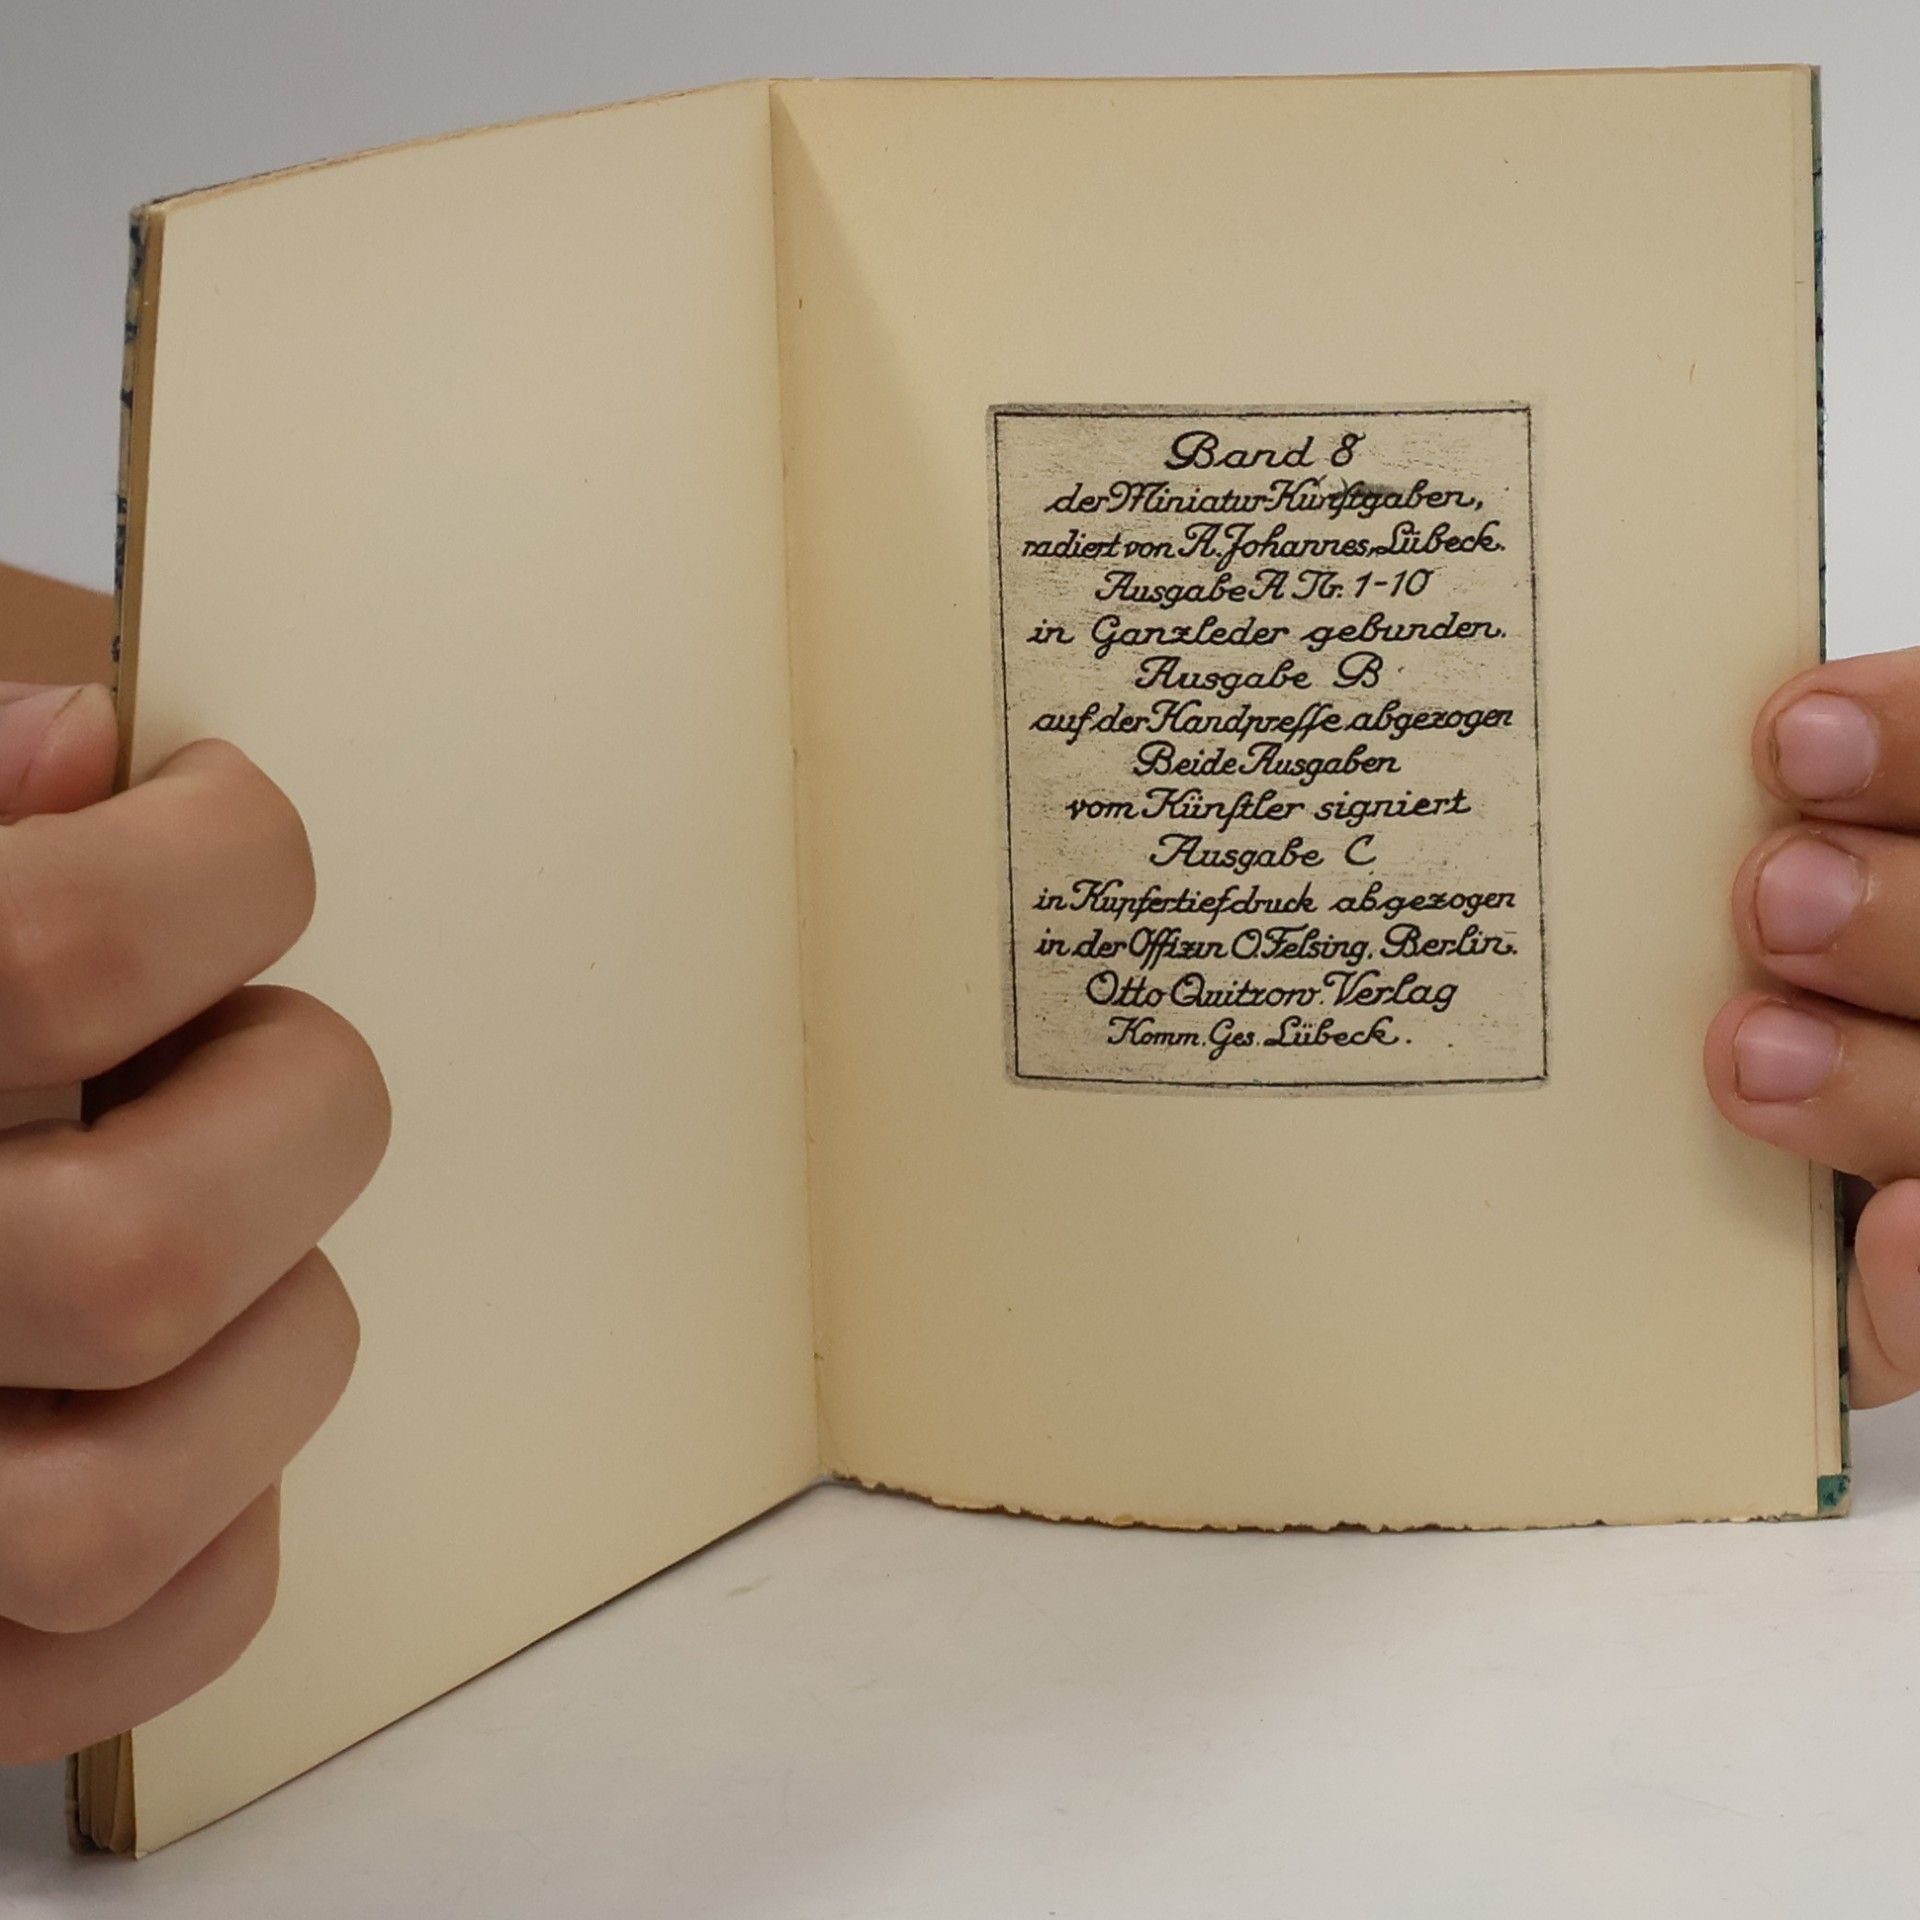 Band 8
der Miniatur-Kunſtgaben,
radiert von A. Johannes, Lübeck.
Ausgabe A Nr. 1-10
in Ganzleder gebunden.
Ausgabe B
auf der Handpreſſe abgezogen
Beide Ausgaben
vom Künſtler signiert
Ausgabe C
in Kupfertiefdruck abgezogen
in der Offizin O. Felsing, Berlin.
Otto Quitzow. Verlag
Komm. Ges. Lübeck.